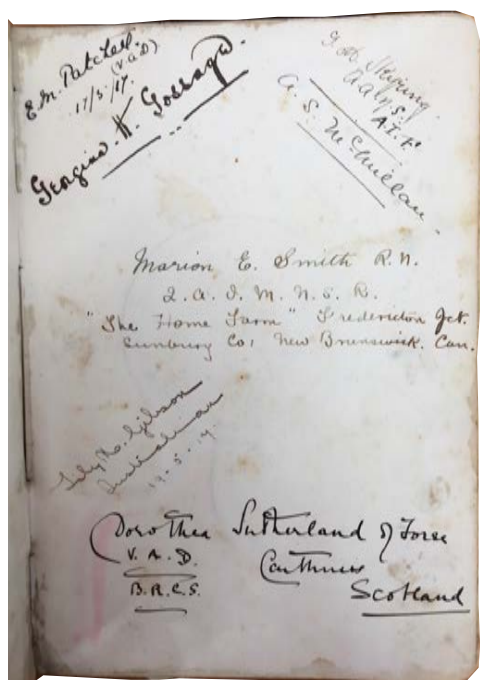 E.M. Patchell
(V.A.D)
17/5/17.
Georgina. H. Gossage.
A.A.N.S.
A.I.F.
A. S. McMillan.
Marion E. Smith R.N.
Q.A.I.M.N.S.R.
"The Home Farm" Fredericton Jct.
Sunbury Co, New Brunswick. Can.
Gibson
Australian
17.5.17.
Dorothea Sutherland of Forse
V.A.D.
Caithness
B.R.C.S.
Scotland